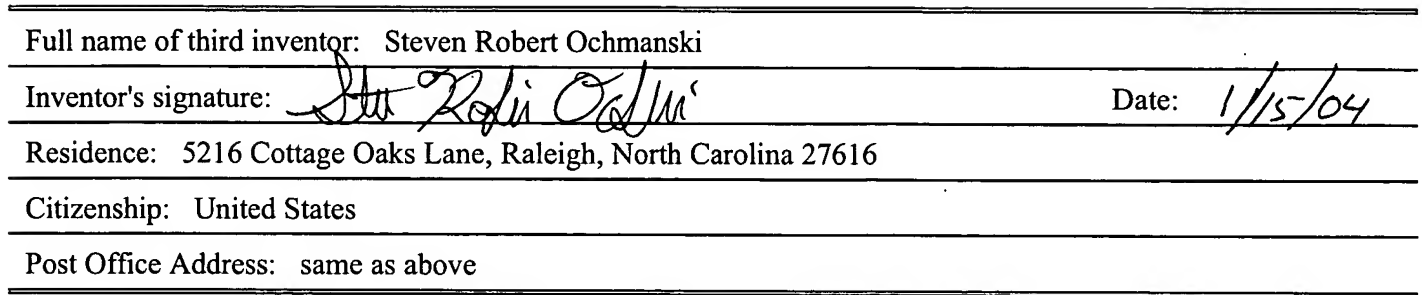 Full name of third inventor: Steven Robert Ochmanski
Inventor's signature: Date: 1/15/04
Residence: 5216 Cottage Oaks Lane, Raleigh, North Carolina 27616
Citizenship: United States
Post Office Address: same as above